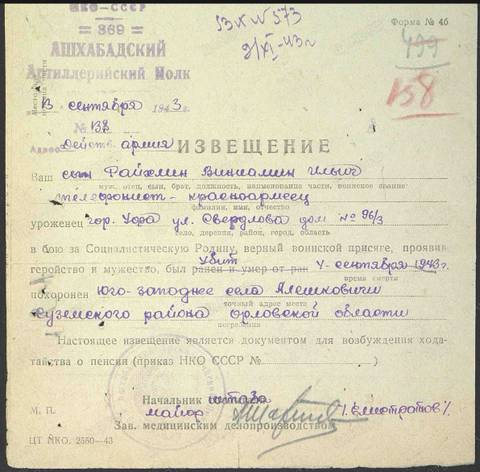 НКО-СССР
369
АШХАБАДСКИЙ
Артиллерийский Полк
вх N 573
9/XI-43г
Форма № 4б
499
138
13 сентября 1943 г.
№ 138
Адрес Действ армия
ИЗВЕЩЕНИЕ
Ваш сын Райхлин Виниамин Ильич
муж, отец, сын, брат, должность, наименование части, воинское звание
телефонист-красноармеец
фамилия, имя, отчество
уроженец гор. Уфа ул. Свердлова дом № 96/3
село, деревня, район, город, область
в бою за Социалистическую Родину, верный воинской присяге, проявив
геройство и мужество, был ранен и умер от ран Убит 4-сентября 1943г
время смерти
похоронен Юго-западнее села Алешковичи
точный адрес места
Суземского района Орловской области
погребения
Настоящее извещение является документом для возбуждения хода-
тайства о пенсии (приказ НКО СССР №
)
Начальник штаба
М. П.
майор
Зав. медицинским делопроизводством
ЦТ НКО. 2550—43